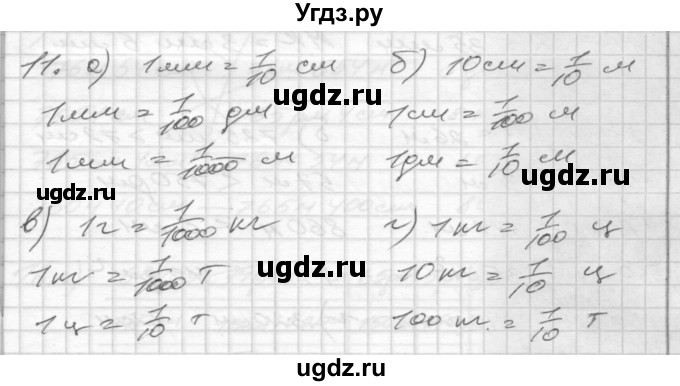 Угдз.ру
11. а) 1мм = 1/10 см б) 10см = 1/10 м
1мм = 1/100 дм 1см = 1/100 м
1мм = 1/1000 м 1дм = 1/10 м
в) 1г = 1/1000 кг г) 1кг = 1/100 ц
1кг = 1/1000 Т 10кг = 1/10 ц
1ц = 1/10 т 100кг. = 1/10 Т
ugdz.ru
ugdz.ru
ugdz.ru
ugdz.ru
ugdz.ru
ugdz.ru
ugdz.ru
ugdz.ru